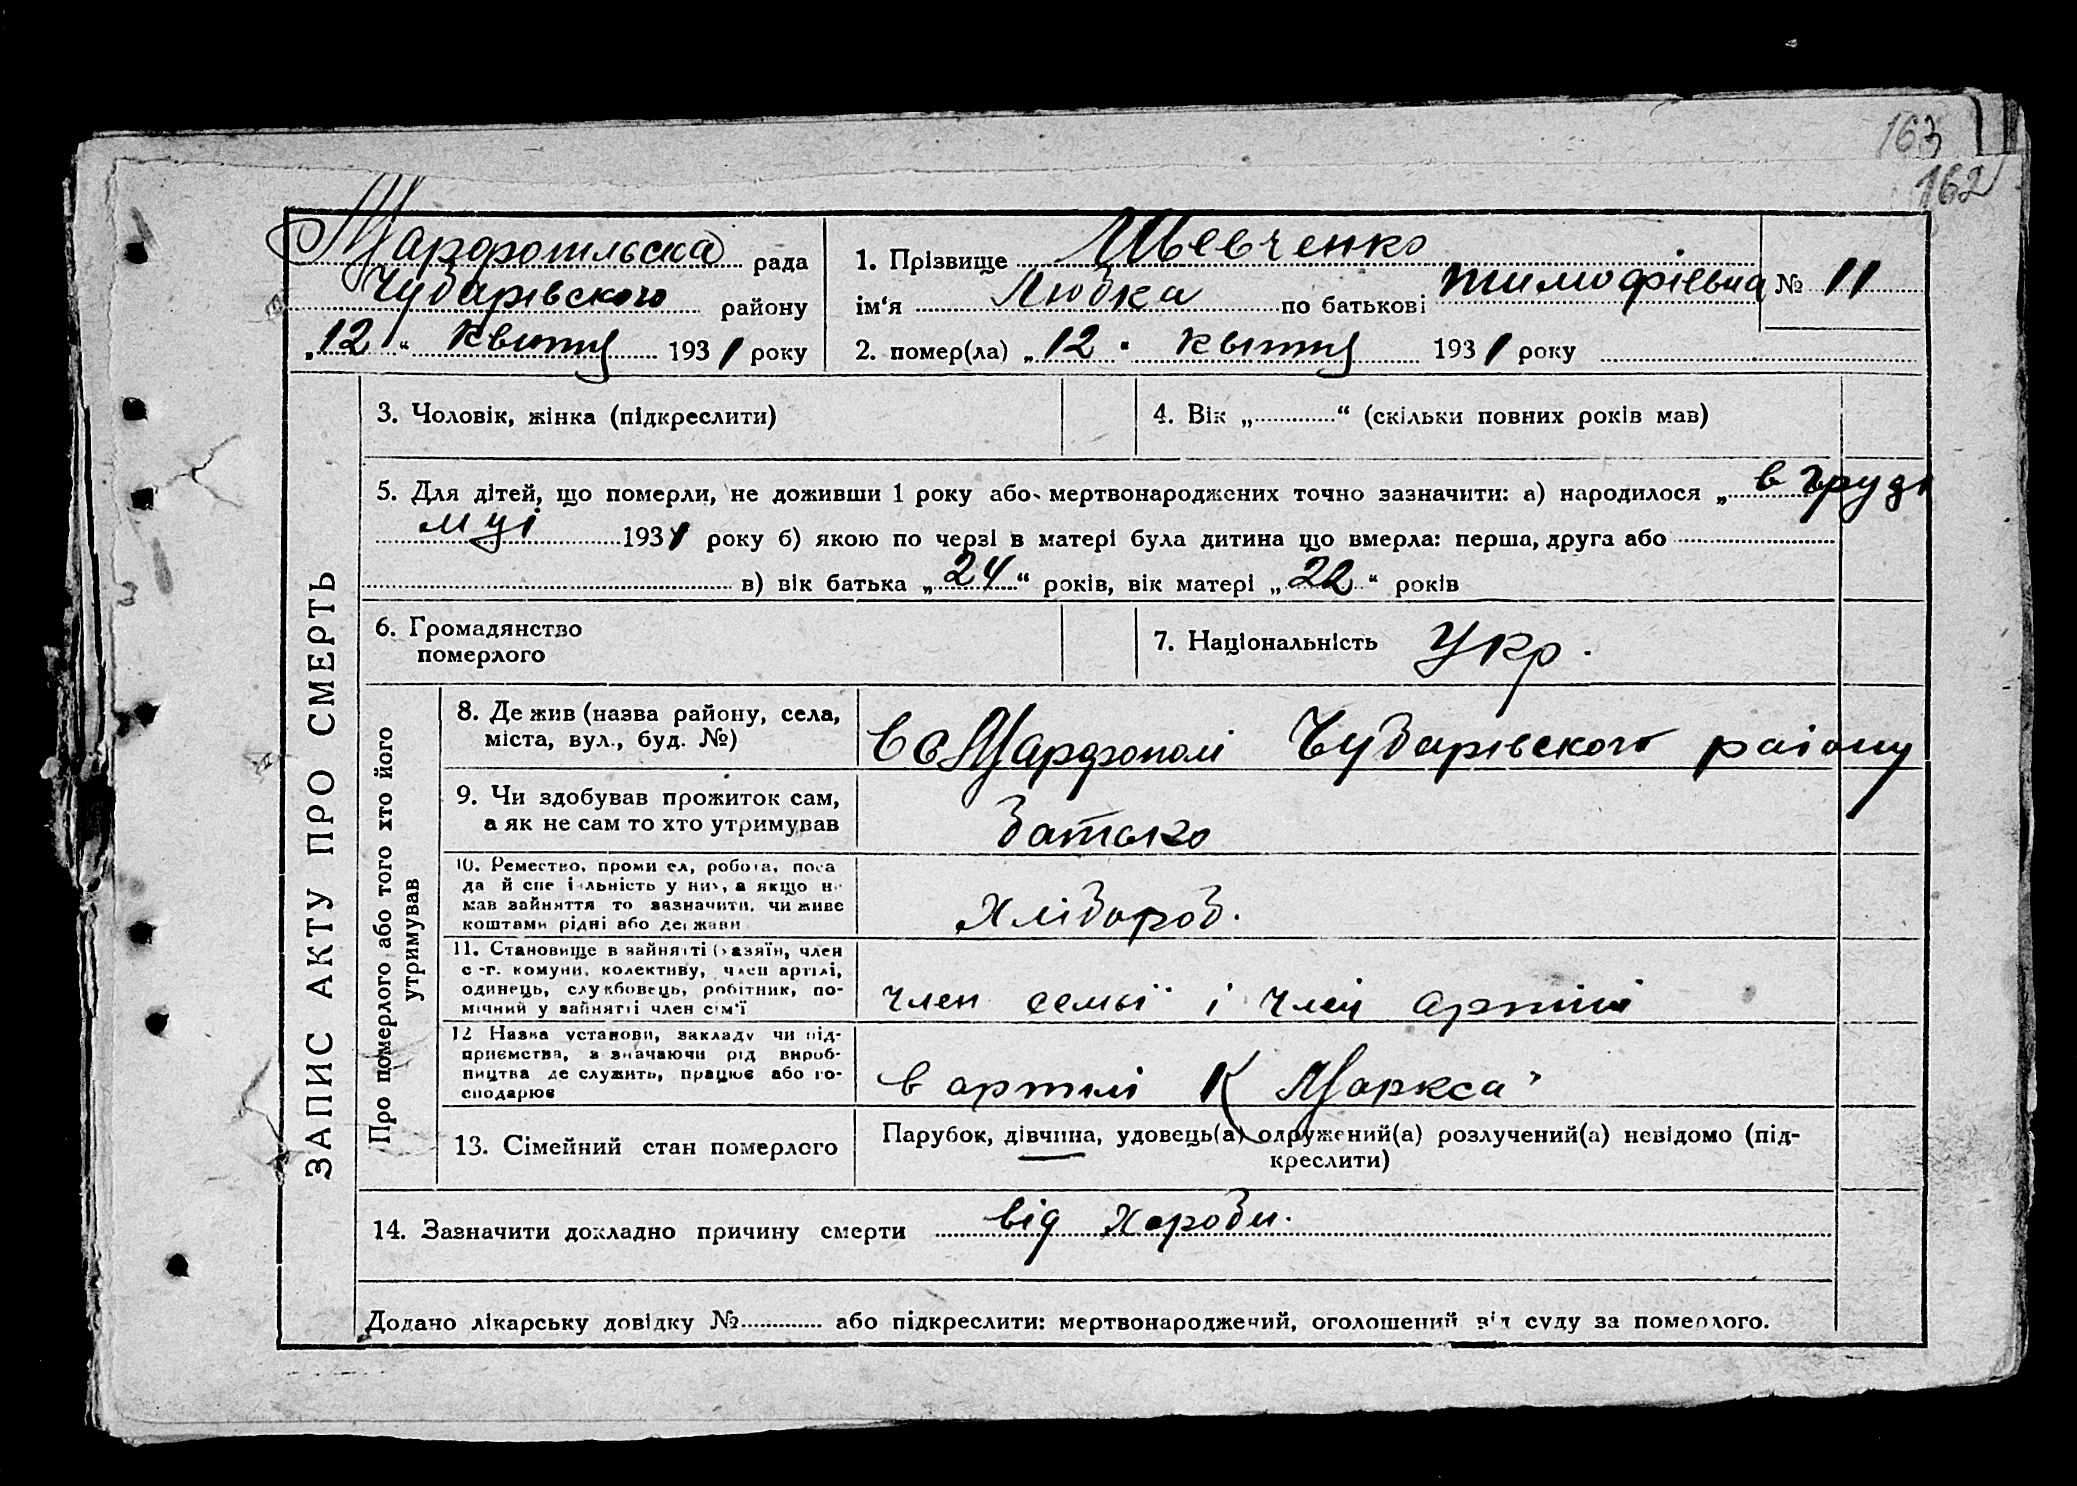 163
162
Марфопільска рада
Чубарівського району
„12“ квітня 1931 року
1. Прізвище Шевченко
ім‘я Любка по батькові Тимофієвна
№ 11
2. помер(ла) „12“ квітня 1931 року
ЗАПИС АКТУ ПРО СМЕРТЬ
3. Чоловік, жінка (підкреслити)
4. Вік „ “ (скільки повних років мав)
5. Для дітей, що померли, не доживши 1 року або мертвонароджених точно зазначити: а) народилося „ в груд
муі 1931 року б) якою по черзі в матері була дитина що вмерла: перша, друга або
в) вік батька „24“ років, вік матері „22“ років
6. Громадянство
померлого
7. Національність Укр.
Про померлого або того хто його
утримував
8. Де жив (назва району, села,
міста, вул., буд. №)
в с Марфополі Чубарівского району
9. Чи здобував прожиток сам,
а як не сам то хто утримував
батько
10. Ремество, промисел, робота, поса
да й спеціяльність у них, а якщо не
мав зайняття то зазначити, чи живе
коштами рідні або держави
Хлібороб.
11. Становище в зайнятті (хазяїн, член
с-г. комуни, колективу, член артілі,
одинець, службовець, робітник, по-
мічний у зайнятті член сім'ї
член семьї і член артілі
12 Назва установи, закладу чи під-
приємства, зазначаючи рід вироб-
ництва де служить, працює або го-
сподарює
в артілі К Маркса
13. Сімейний стан померлого
Парубок, дівчина, удовець(а) одружений(а) розлучений(а) невідомо (під-
креслити)
14. Зазначити докладно причину смерти від хороби.
Додано лікарську довідку № або підкреслити: мертвонароджений, оголошений від суду за померлого.